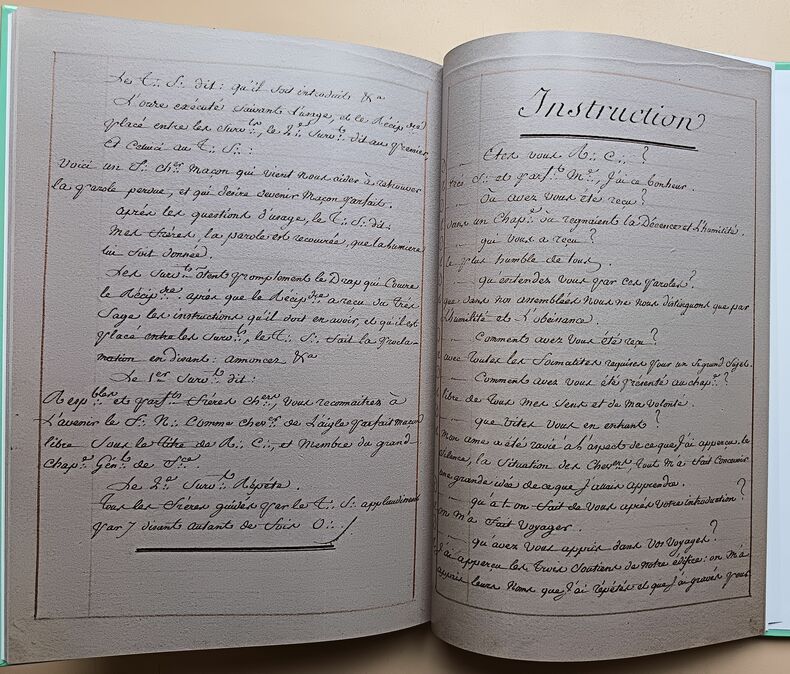 Le T∴ S∴ dit: qu'il soit introduit &a
L'ordre exécuté suivant l'usage, et le Récip.re
placé entre les Surv.ts, le 2.d Surv.t dit au premier,
et celuici au T∴ S∴:
Voici un f∴ che.r maçon qui vient nous aider à retrouver
la parole perdue, et qui desire devenir Maçon parfait.
après les questions d'usage, le T∴ S∴ dit.
Mes frères, la parole est recouvrée, que la lumiere
lui soit donnée.
Les Surv.ts otent promptement le Drap qui Couvre
le Récip.re après que le Récip.re a reçu du très
Sage les instructions qu'il doit en avoir, et qu'il est
placé entre les Surv.ts, le T∴ S∴ fait la procla-
mation en disant: annoncez &a
Le 1.er Surv.t dit:
Resp.bles et parf.ts frères Che.rs, vous reconnaitrez à
L'avenir le f∴ N∴ Comme chev.r de L'aigle parfait maçon
libre Sous le titre de R∴ C∴, et Membre du grand
Chap.e Gén.l de f.ce
Le 2.d Surv.t Répète.
Tous les frères guidés par le T∴ S∴ applaudissent
par 7 disant autant de fois O∴
Instruction
Etes vous R∴ C∴ ?
très S∴ et parf.t M.e, J'ai ce bonheur.
Où avez vous été reçu ?
dans un Chap.e où regnaient la Décence et l'humilité.
qui vous a reçu ?
le plus humble de tous.
qu'entendez vous par ces paroles ?
que dans nos assemblées nous ne nous distinguons que par
L'humilité et L'obeissance.
Comment avez vous été reçu ?
avec toutes les formalités requises pour un Si grand Sujet.
Comment avez vous été présenté au chap.e ?
libre de tous mes Sens et de ma Volonté.
que vites vous en entrant ?
mon ame a été ravie à l'aspect de ce que J'ai apperçu. le
Silence, la Situation des Chev.ers, tout m'a fait Concevoir
une grande idée de ce que J'allais apprendre.
qu'a t on fait de vous après votre introduction ?
on m'a fait voyager.
qu'avez vous appris dans vos voyages ?
J'ai apperçu les trois Soutiens de notre édifice: on m'a
appris leurs Noms que J'ai répétés et que J'ai gravés pour